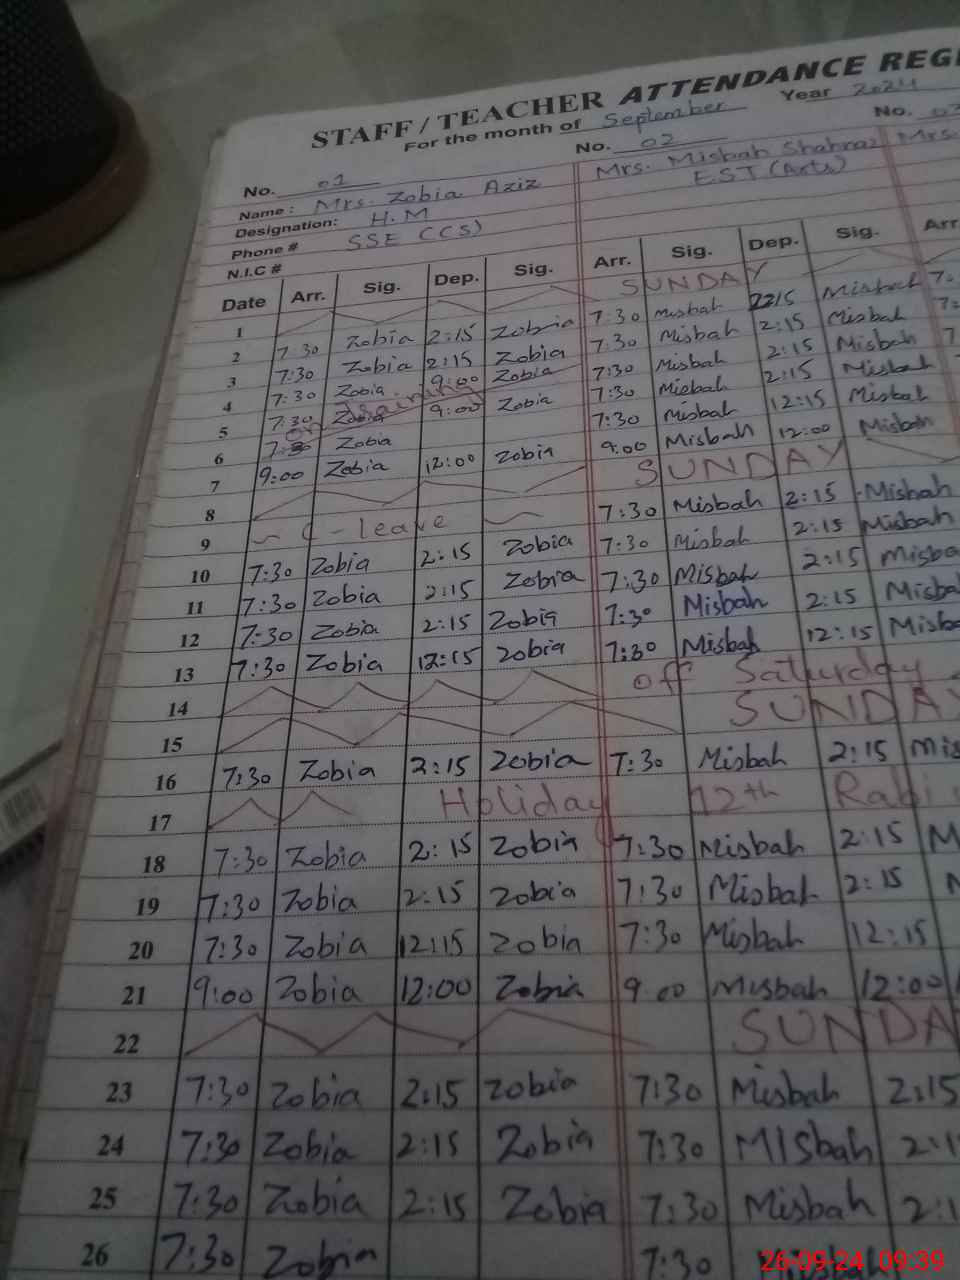 STAFF / TEACHER ATTENDANCE REG
For the month of September Year 2024
No. 01 No. 02 No. 03
Name: Mrs. Zobia Aziz Mrs. Misbah Shahraz Mrs.
Designation: H.M EST (Arts)
Phone # SSE (CS)
N.I.C #
Date Arr. Sig. Dep. Sig. Arr. Sig. Dep. Sig. Arr.
1 SUNDAY
2 7:30 Zobia 2:15 Zobia 7:30 Misbah 2:15 Misbah 7:
3 7:30 Zobia 2:15 Zobia 7:30 Misbah 2:15 Misbah
4 7:30 Zobia 9:00 Zobia 7:30 Misbah 2:15 Misbah
5 7:30 Zobia on training 9:00 Zobia 7:30 Misbah 2:15 Misbah
6 7:30 Zobia 7:30 Misbah 12:15 Misbah
7 9:00 Zobia 12:00 Zobia 9:00 Misbah 12:00 Misbah
8 SUNDAY
9 C-leave 7:30 Misbah 2:15 Misbah
10 7:30 Zobia 2:15 Zobia 7:30 Misbah 2:15 Misbah
11 7:30 Zobia 2:15 Zobia 7:30 Misbah 2:15 Misba
12 7:30 Zobia 2:15 Zobia 7:30 Misbah 2:15 Misba
13 7:30 Zobia 12:15 Zobia 7:30 Misbah 12:15 Misba
14 off Saturday
15 SUNDAY
16 7:30 Zobia 2:15 Zobia 7:30 Misbah 2:15 Mis
17 Holiday 12th Rabi
18 7:30 Zobia 2:15 Zobia 7:30 Misbah 2:15 M
19 7:30 Zobia 2:15 Zobia 7:30 Misbah 2:15
20 7:30 Zobia 12:15 Zobia 7:30 Misbah 12:15
21 9:00 Zobia 12:00 Zobia 9:00 Misbah 12:00
22 SUNDA
23 7:30 Zobia 2:15 Zobia 7:30 Misbah 2:15
24 7:30 Zobia 2:15 Zobia 7:30 Misbah 2:1
25 7:30 Zobia 2:15 Zobia 7:30 Misbah 2:1
26 7:30 Zobia 7:30
26-09-24 09:39